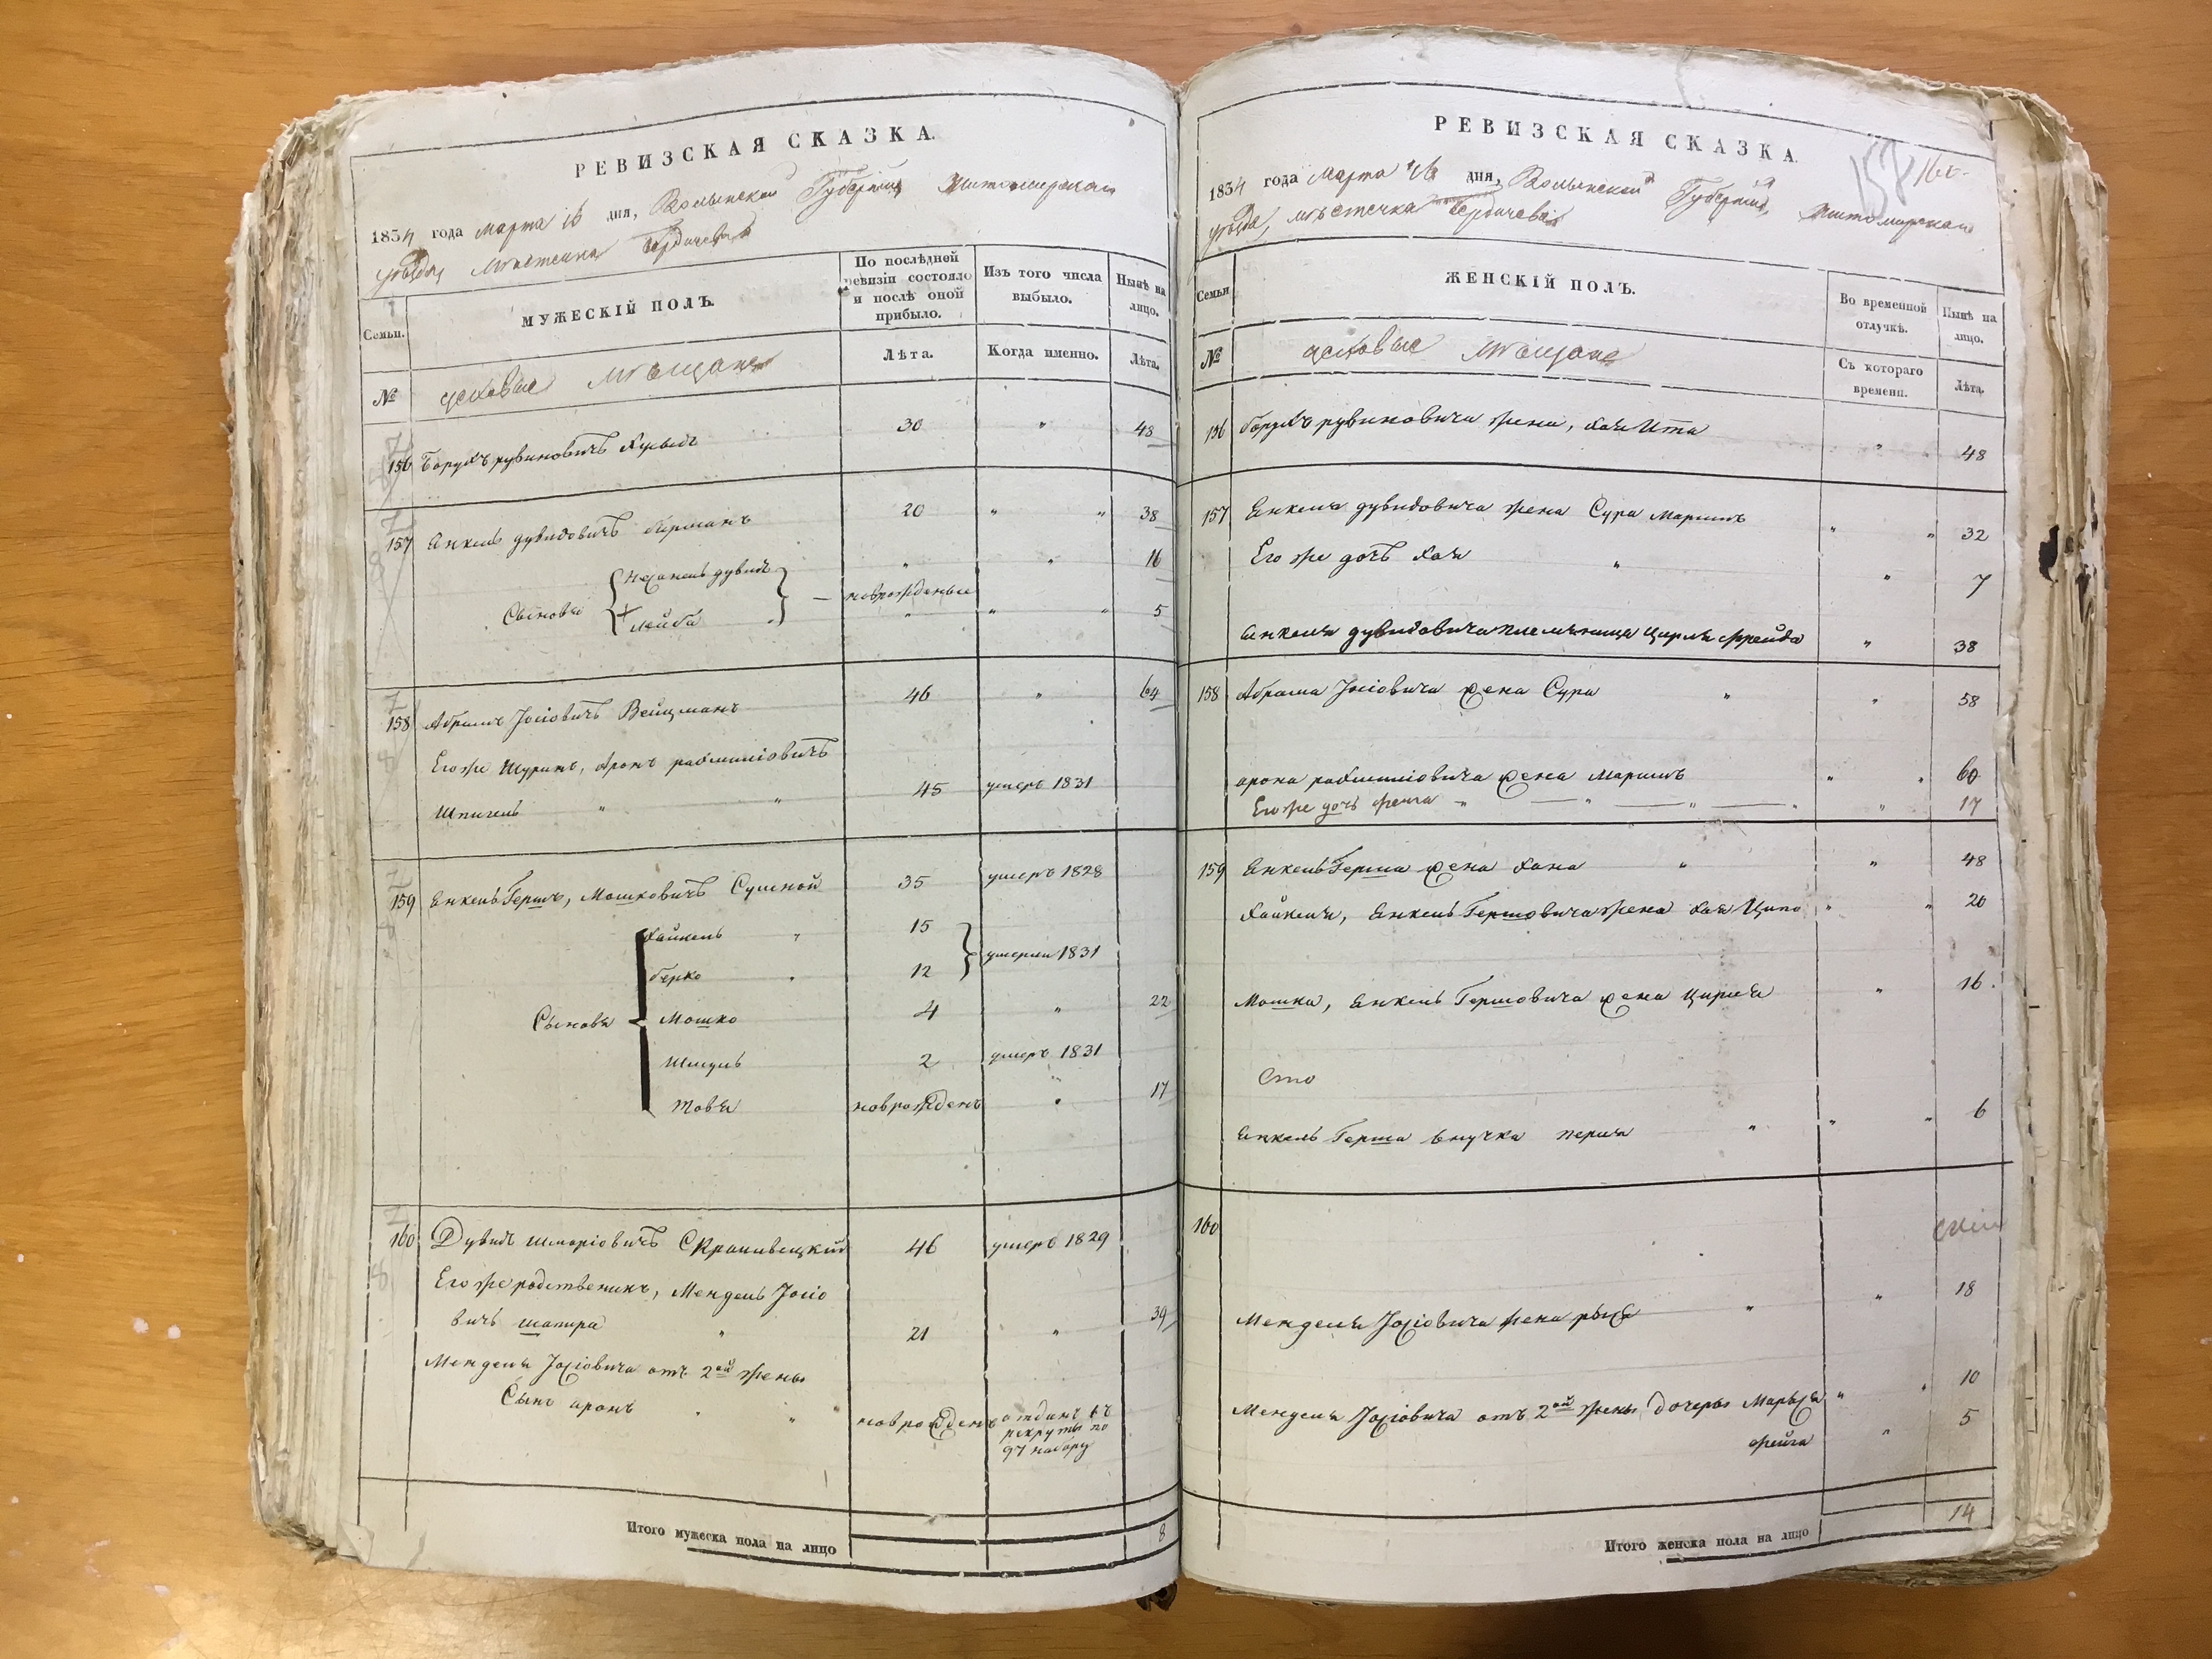 РЕВИЗСКАЯ СКАЗКА.
1834 года Марта 16 дня, Волынской Губернии Житомирскаго
уезда, местечка Бердичева
Семьи. МУЖЕСКІЙ ПОЛЪ. По послѣдней ревизіи состояло и послѣ оной прибыло. Изъ того числа выбыло. Нынѣ на лицо.
№ цеховые мещане Лѣта. Когда именно. Лѣта.
156 Борухъ рувиновичъ 30 " 48
157 Янкель дувидовичъ 20 " " 38
" " 16
Сыновья новрожденые
Лейба " " " 5
158 Абрамъ Іосіовичъ Вейцманъ 46 " 64
Егоже Шуринъ, Аронъ
Шпигель " " 45 умеръ 1831
159 Янкель Гершъ, Мошковичъ Сушной 35 умеръ 1828
Хайкель " 15
Берко " 12 умерли 1831
Сыновья Мошко 4 " 22
Шмуль 2 умеръ 1831
Товія новрожденъ " 17
160 Дувидъ Шмаріовичъ 46 умеръ 1829
Егоже родственикъ, Мендель Іосіо
вичъ шапира " 21 " 39
Менделя Іосіовича отъ 2ой жены
Сынъ аронъ " " новрожденъ отданъ въ
рекруты по
97 набору
Итого мужеска пола на лицо 8
РЕВИЗСКАЯ СКАЗКА.
158 160
1834 года Марта 16 дня, Волынской Губернии, Житомирскаго
уезда, местечка Бердичева
Семьи ЖЕНСКІЙ ПОЛЪ. Во временной отлучкѣ. Нынѣ на лицо.
№ цеховые мещане Съ котораго времени. Лѣта.
156 борухъ рувиновича жена, хая Ита " 48
157 Янкеля дувидовича жена Сура Маримъ " " 32
Его же дочь хая " " 7
Янкеля дувидовича племяница Цирля фрейда " 38
158 Абрама Іосіовича жена Сура " " 58
арона жена Маримъ " " 60
Егоже дочь фейга " " " " " 17
159 Янкель Герша жена хана " " 48
Хайкеля, Янкель Гершовича жена хая Ципо " " 20
Мошка, Янкель Гершовича жена Цирля " 16.
Сто
Янкель Герша внучка перля " " " 6
160
Менделя Іосіовича жена рыся " " 18
Менделя Іосіовича отъ 2ой жены дочеры Марьяся " " 10
фейга " 5
Итого женска пола на лицо 14